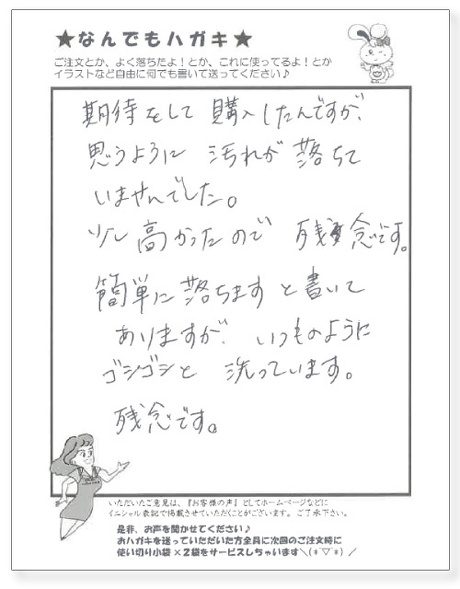 ★なんでもハガキ★
ご注文とか、よく落ちたよ！とか、これに使ってるよ！とか
イラストなど自由に何でも書いて送ってください♪
期待をして 購入したんですが、
思うように 汚れが 落ちて
いませんでした。
少し 高かったので 残念です。
簡単に落ちます と書いて
ありますが、いつものように
ゴシゴシと 洗っています。
残念です。
いただいたご意見は、『お客様の声』としてホームページなどに
イニシャル表記で掲載させていただくことがございます。ご了承下さい。
是非、お声を聞かせてください♪
おハガキを送っていただいた方全員に次回のご注文時に
使い切り小袋×2袋をサービスしちゃいます＼(*´▽`*)／